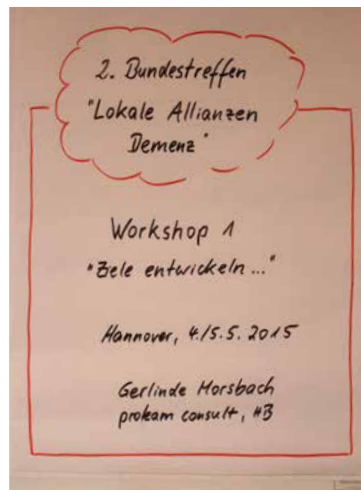 2. Bundestreffen
"Lokale Allianzen
Demenz"
Workshop 1
"Ziele entwickeln..."
Hannover, 4./5.5. 2015
Gerlinde Morsbach
prokam consult, HB